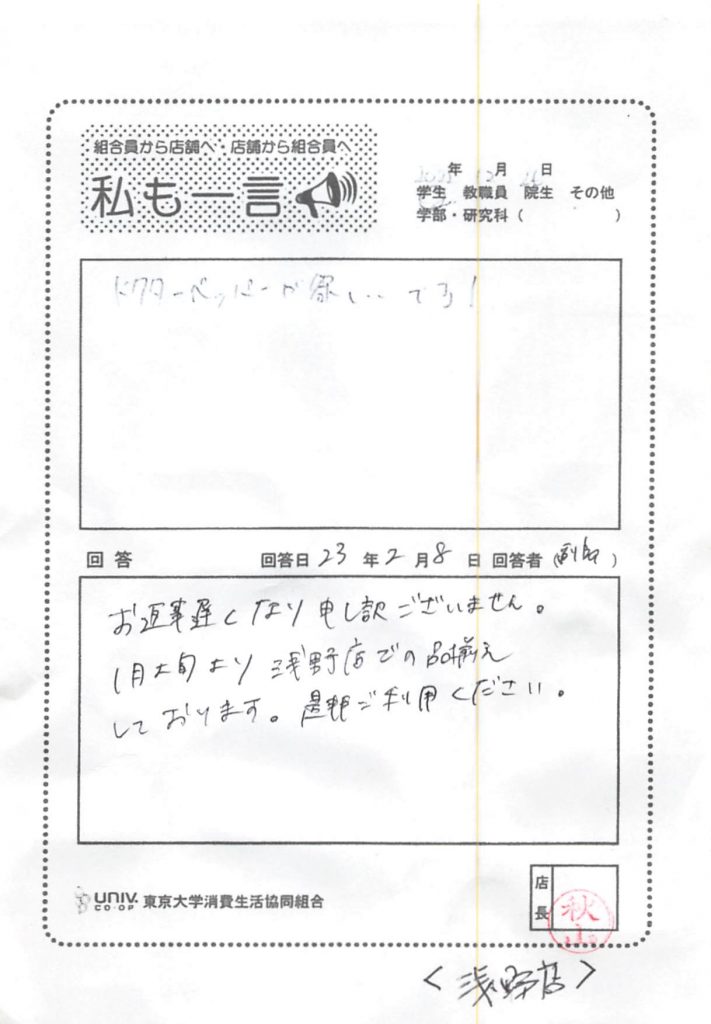 組合員から店舗へ・店舗から組合員へ
私も一言
年 月 日
学生 教職員 院生 その他
学部・研究科( )
ドクターペッパーが欲しい… です!
回答 回答日 23 年 2 月 8 日 回答者( )
お返事遅くなり申し訳ございません。
1月上旬より浅野店での品揃え
しております。是非ご利用ください。
UNIV. CO-OP 東京大学消費生活協同組合
店長
秋山
<浅野店>